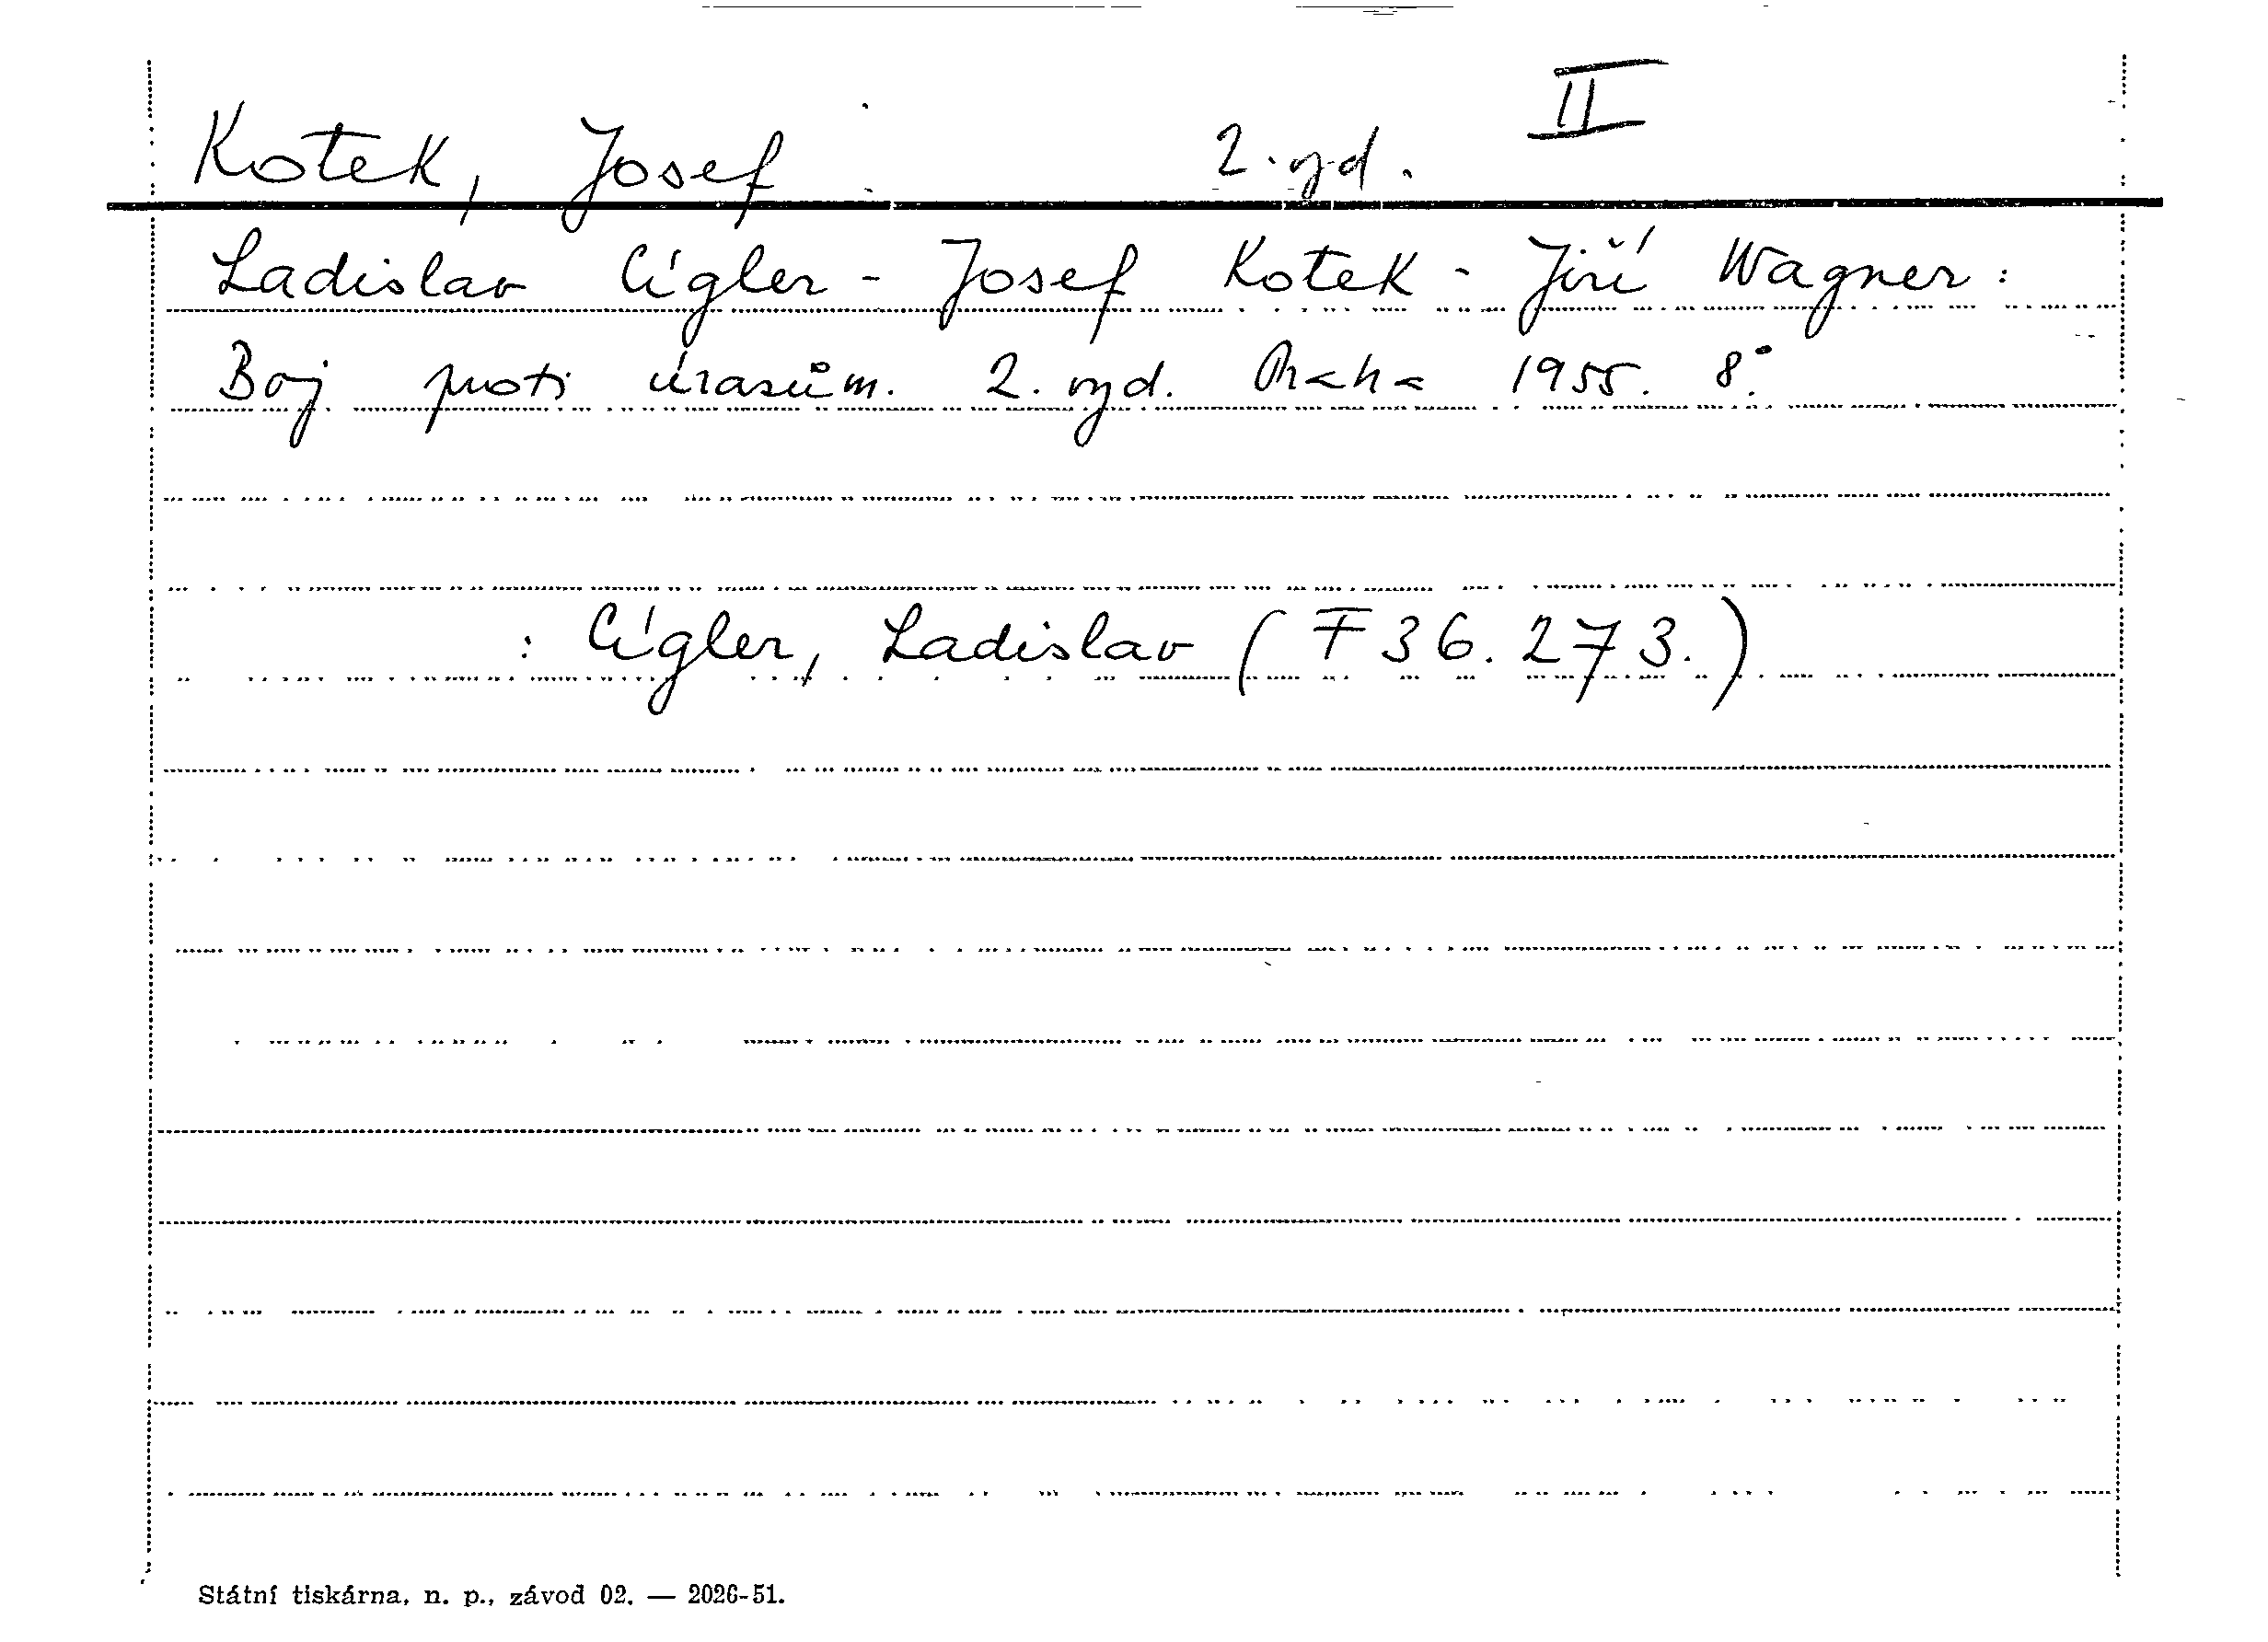 II
Kotek, Josef 2. vyd.
Ladislav Cígler - Josef Kotek - Jiří Wagner:
Boj proti úrazům. 2. vyd. Praha 1955. 8°.
: Cígler, Ladislav (F 36.273.)
Státní tiskárna, n. p., závod 02. — 2026-51.